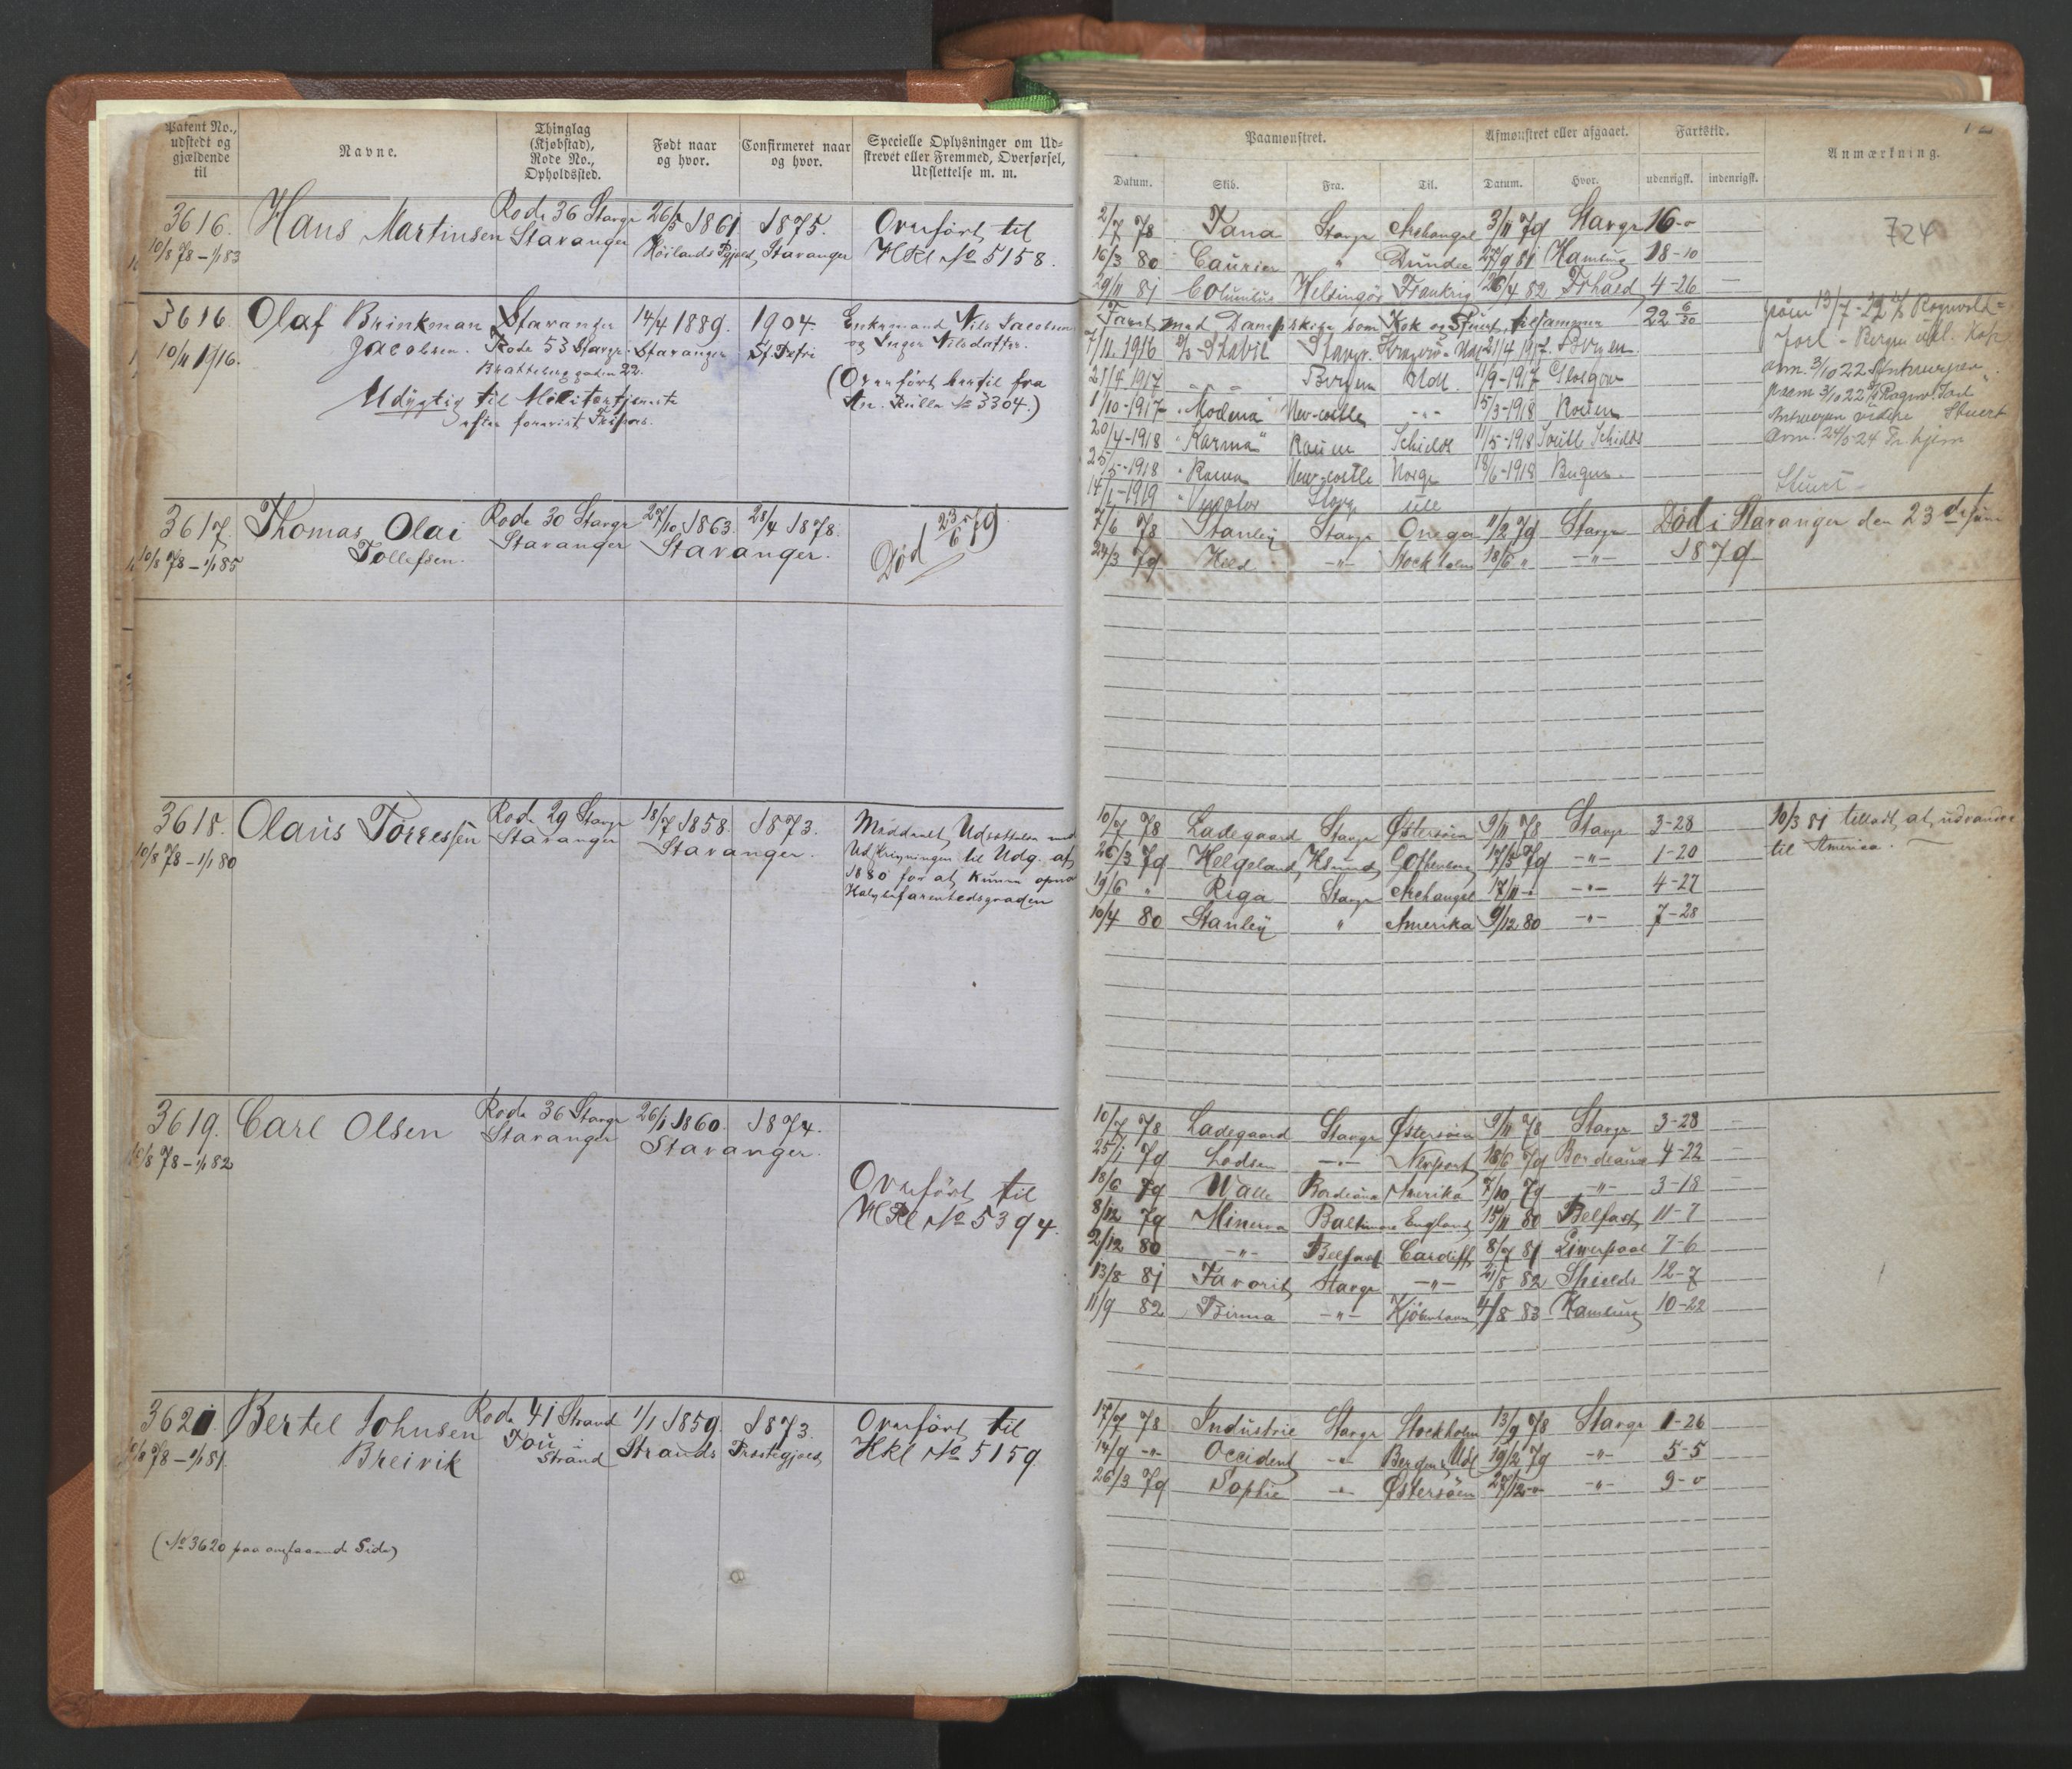 Patent No., udstedt og gjældende til
Navne.
Thinglag (Kjøbstad), Rode No., Opholdssted.
Født naar og hvor.
Confirmeret naar og hvor.
Specielle Oplysninger om Udskrevet eller Fremmed, Overførsel, Udslettelse m. m.
3616. Hans Martinsen Rode 36 Stavgr 26/5 1861 1875. Overført til
10/8 78 – 1/1 83 Stavanger Høilands Pgjeld, Stavanger HRl No 5158.
3616 Olaf Brinkman Stavanger 14/4 1889. 1904. Enkemand Nils Jacobsen
10/11 1916. Jacobsen. Rode 53 Stavgr. Stavanger St. Petri og Inger Nilsdatter.
Udygtig til Militærtjeneste
(Overført hertil fra
An. Rulle No 3304.)
3617. Thomas Olai Rode 30 Stavgr 27/10 1863. 28/4 1878.
10/8 78 – 1/1 85 Tollefsen. Stavanger Stavanger. Død 23/6 79
3618. Olaus Torressen Rode 29 Stavgr 18/7 1858. 1873. Meddelt Udsættelse med
10/8 78 – 1/1 80 Stavanger Stavanger. Udskrivningen til Udg. af
1880 for at kunne opnaa
Halvbefarenhedsgraden
3619. Carl Olsen Rode 36 Stavgr 26/1 1860. 1874.
10/8 78 – 1/1 82 Stavanger Stavanger.
Overført til
HRl No 5394.
3621 Bertel Johnsen Rode 41 Strand 1/1 1859. 1873. Overført til
10/8 78 – 1/1 81. Breivik Tou i Strand Strands Præstegjæld, Hkl No 5159
(No 3620 paa omstaaende Side)
Paamønstret. Afmønstret eller afgaaet. Fartstid.
Anmærkning.
Datum. Skib. Fra. Til. Datum. Hvor. udenrigsk. indenrigsk.
2/7 78 Tana Stavgr Archangel 3/11 79 Stavgr 16-0
724
16/3 80 Caurier " Dundee 27/9 81 Hamburg 18-10
29/11 81 Columbus Helsingör Frankrig 26/4 82 4-26
Faret med Dampskibe som Kok og Stuert tilsammen 22 6/30
7/11. 1916 Stavgr. 21/4 1917. Bergen
21/4 1917 " " " Bergen Udl. 11/9-1917 Glasgow
1/10-1917 "Modena" New-castle -"- 15/3-1918 Rouen
20/4-1918 "Karma" Rouen Schields 11/5-1918 South Schields
25/5-1918 New-castle Norge 18/6-1918 Bergen.
14/1-1919 Stavgr
arm. 3/10 22 Antwerpen
Stuert
arm. 24/5 24 Tr.hjem
Stuert
7/6 78 Stanley Stavgr Onega 11/2 79 Stavgr Død i Stavanger den 23de Juni
24/3 79 Held -"- Stockholm 18/6 " -"- 1879
10/7 78 Ladegaard Stavgr Østersøen 9/11 78 Stavgr 3-28 10/3 81 tilladt at udvandre
26/3 79 Helgeland Hsund Gothenborg 17/5 79 -"- 1-20 til Amerika.
19/6 " Riga Stavgr Archangel 17/11 -"- -"- 4-27
10/4 80 Stanley " Amerika 9/12 80 -"- 7-28
10/7 78 Ladegaard Stavgr Østersøen 9/11 78 Stavgr 3-28
25/1 79 Lodsen -"- Newport 18/6 79 Bordeaux 4-22
18/6 79 Walle Bordeaux Amerika 7/10 79 -"- 3-18
8/12 79 Minerva Baltimore England 15/11 80 Belfast 11-7
2/12 80 -"- Belfast Cardiff 8/7 81 Liverpool 7-6
13/8 81 Favorit Stavgr -"- 21/8 82 Shields 12-7
11/9 82 Birma -"- Kjöbenhavn 4/8 83 Hamburg 10-22
17/7 78 Industrie Stavgr Stockholm 13/9 78 Stavgr 1-26
14/9 -"- Occident -"- Bergen Udl 19/2 79 -"- 5-5
26/3 79 Sophie -"- Østersøen 27/12 -"- -"- 9-0